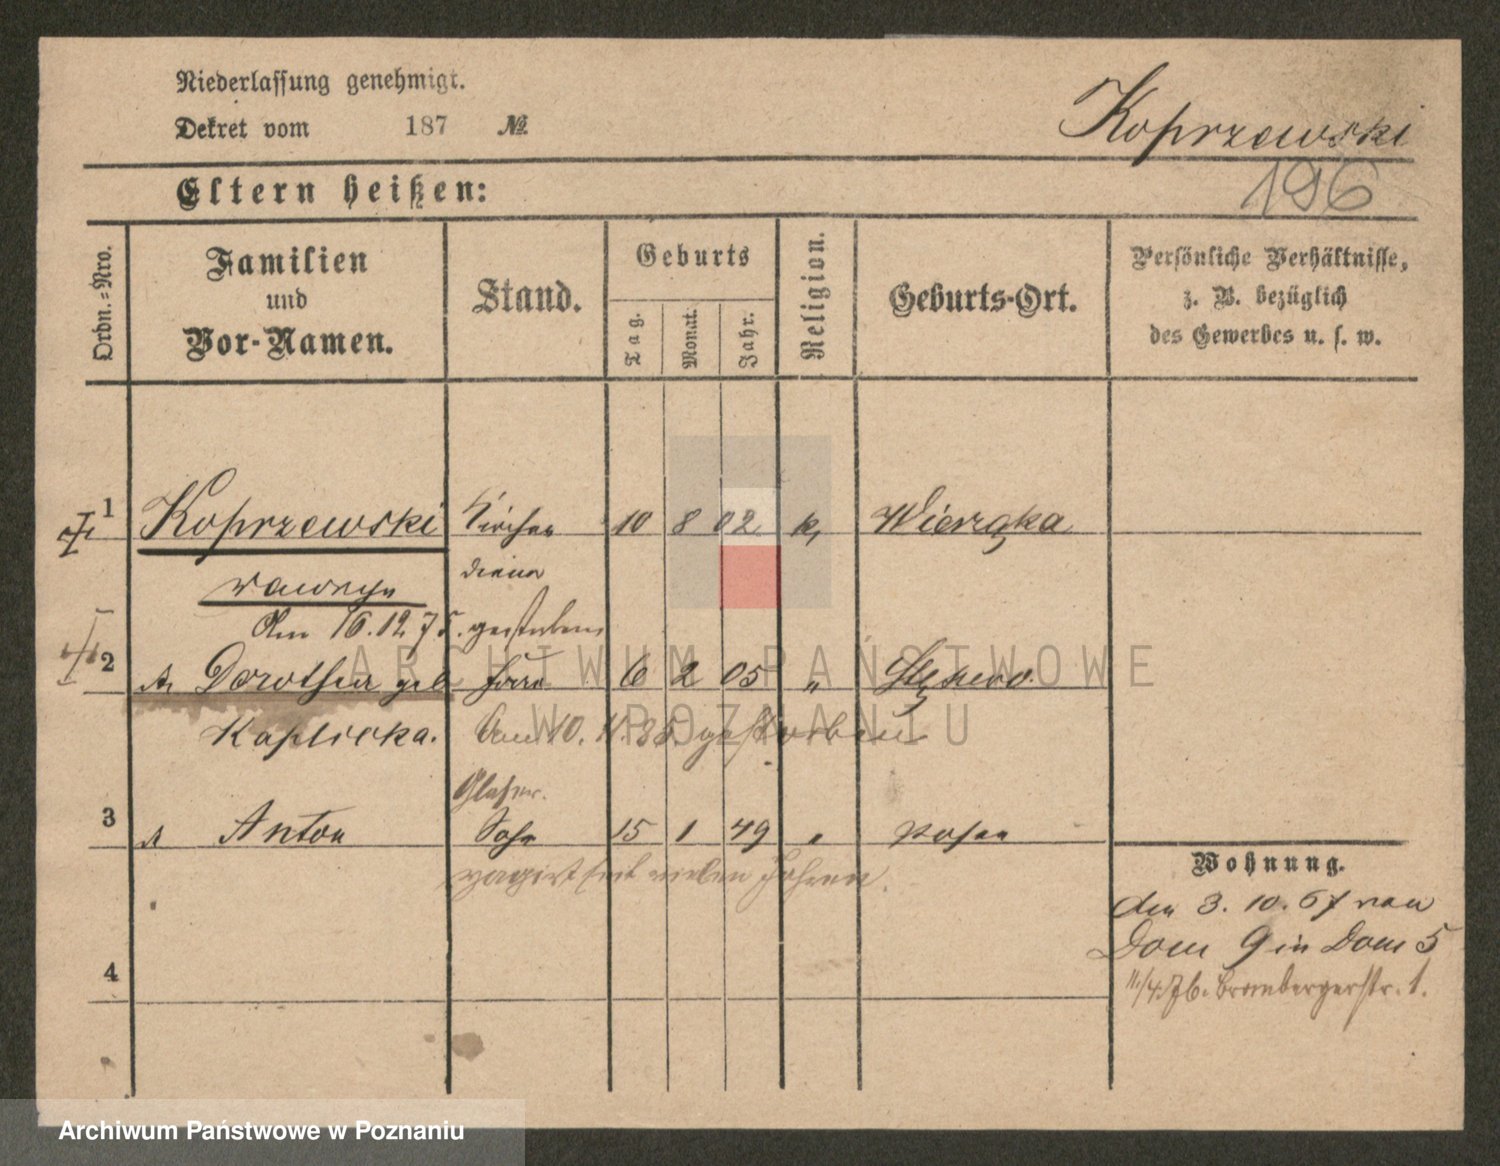 Niederlassung genehmigt.
Dekret vom 187 №
Koprzewski
196
Eltern heißen:
Ordn.-Nro.
Familien
und
Vor-Namen.
Stand.
Geburts
Tag.
Monat.
Jahr.
Religion.
Geburts-Ort.
Persönliche Verhältnisse,
z. B. bezüglich
des Gewerbes u. s. w.
1 Koprzewski Kirchen 10 8 02 k,
diener
Wawrzyn
Am 16.12.75. gestorben
2 Dorothea geb Frau 6 2 05 "
Kaplicka. Am 10. gestorben
Glaser.
3 Anton Sohn 15 1 49 " Posen
vagirt seit vielen Jahren.
Wohnung.
den 3. 10. 67 von
Dom 9 in Dom 5
11/4.76. Brombergerstr. 1.
4
ARCHIWUM PAŃSTWOWE
W POZNANIU
Archiwum Państwowe w Poznaniu